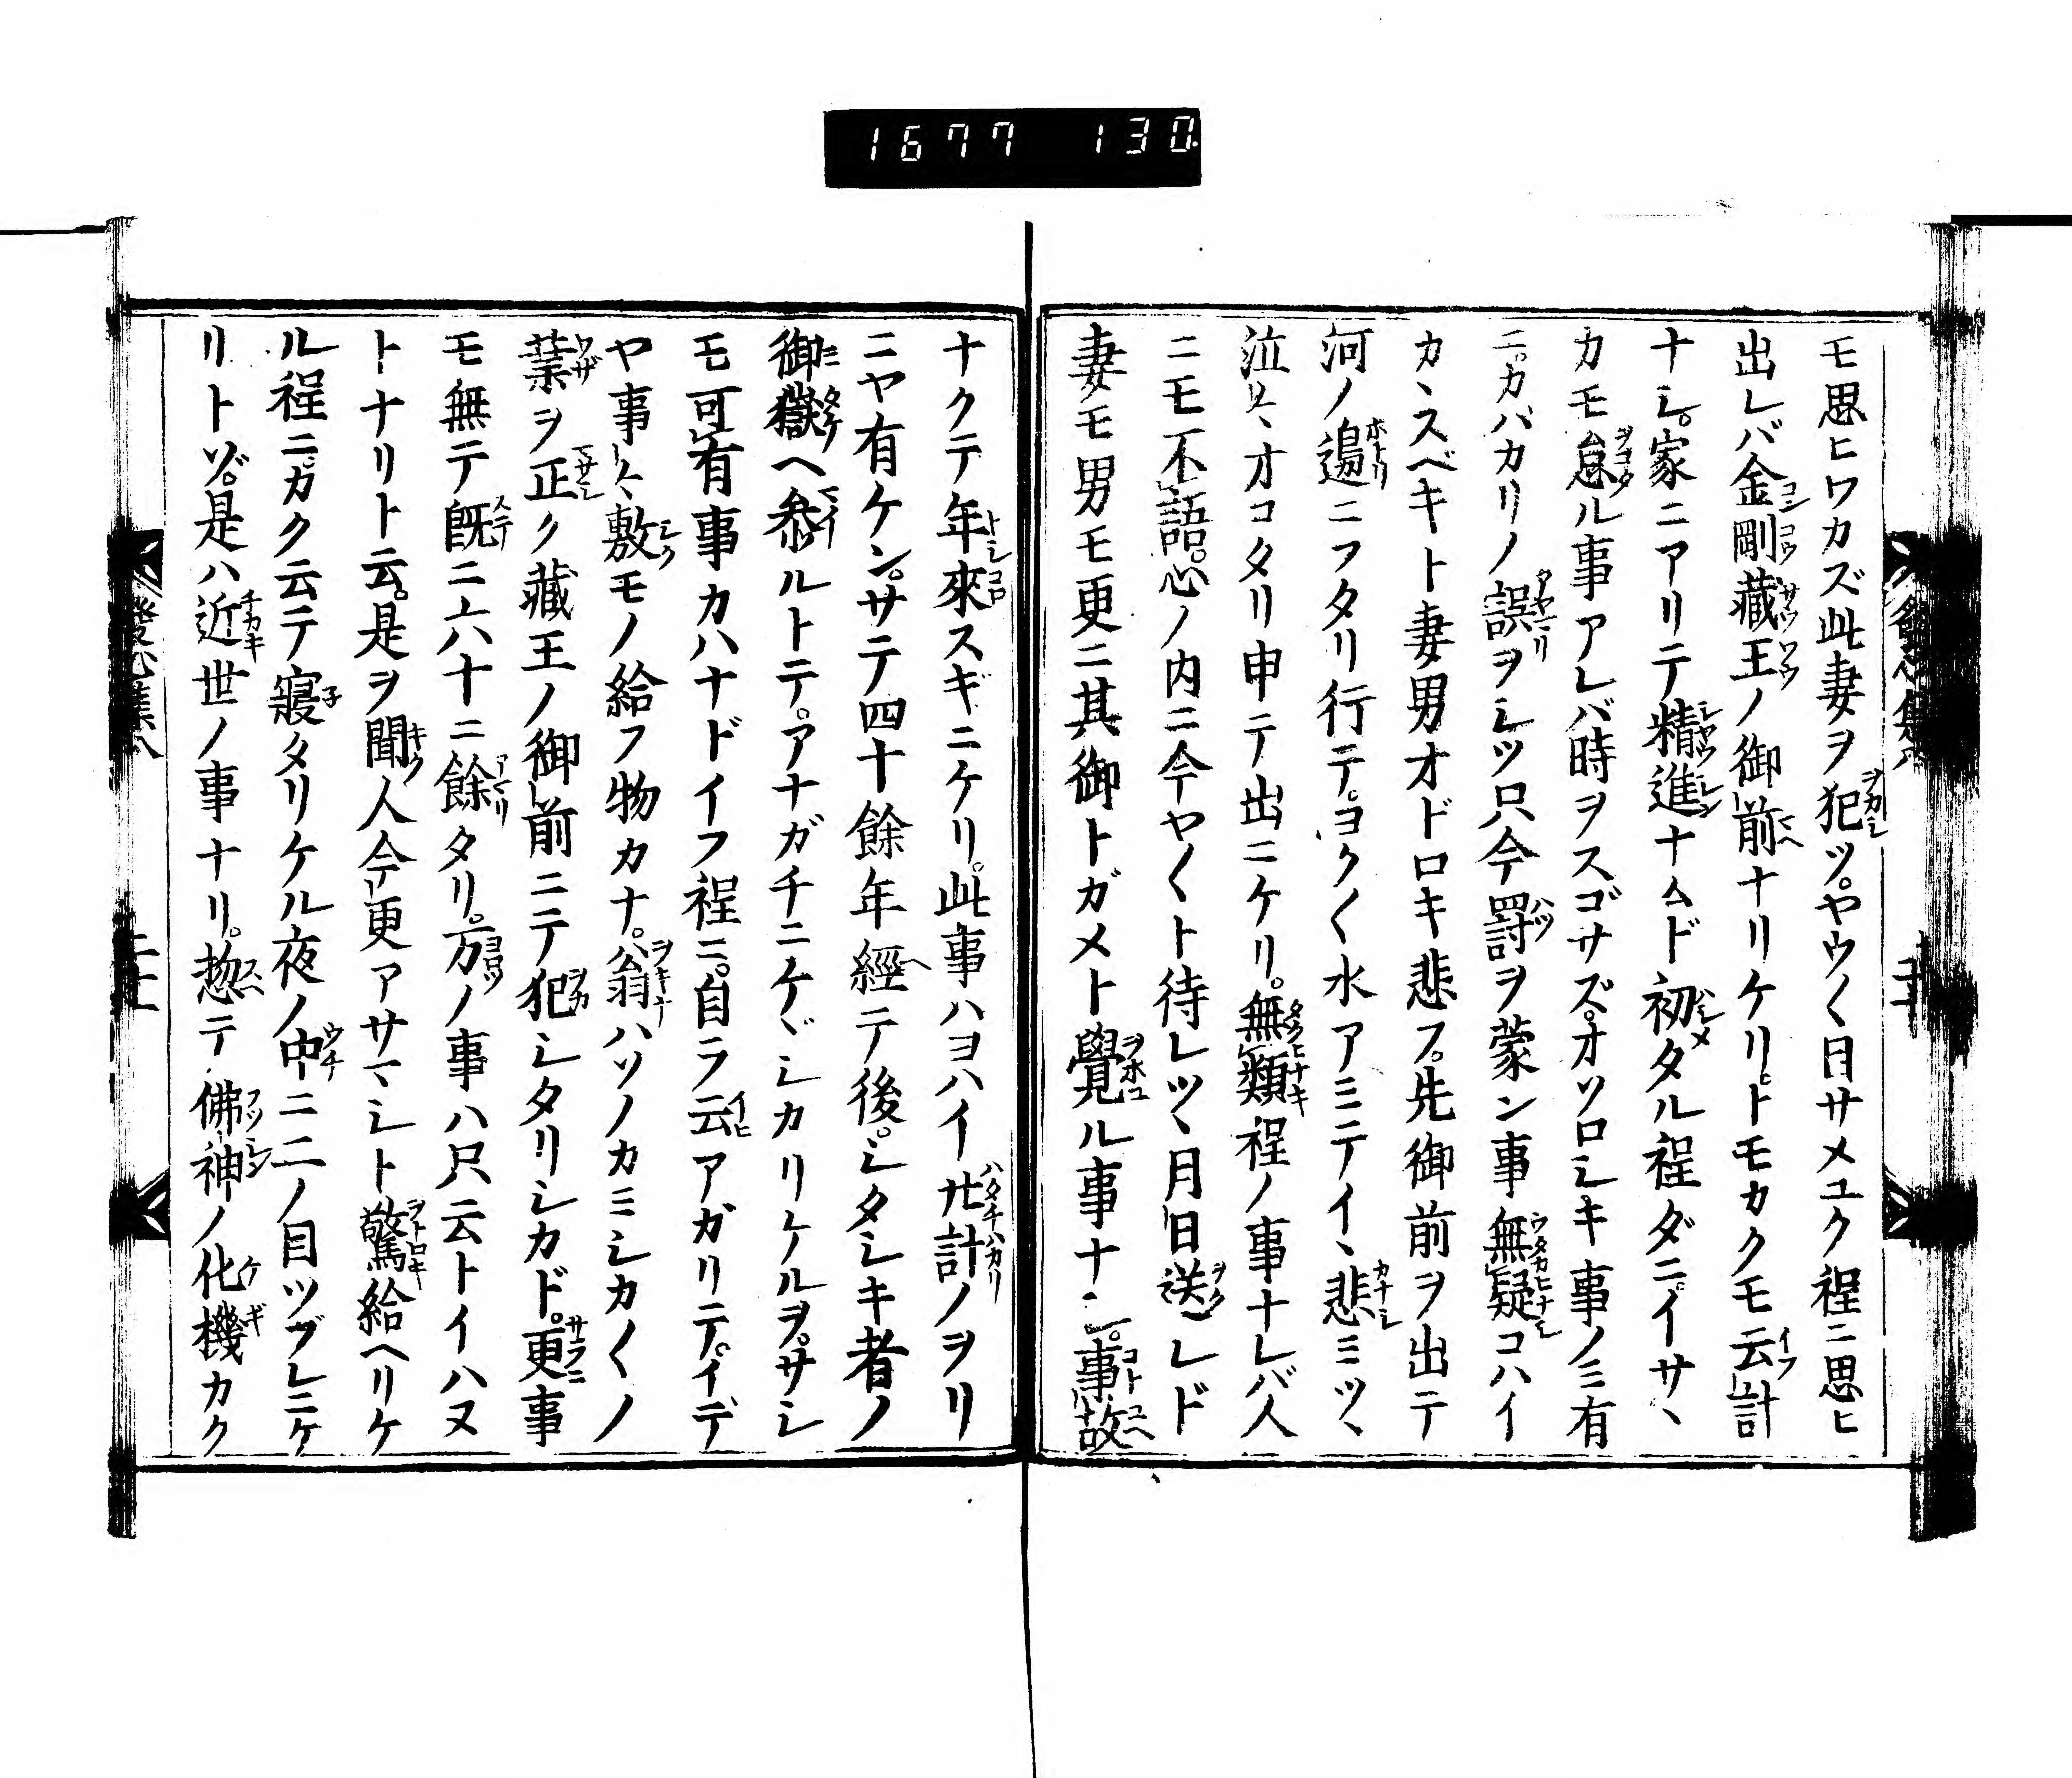 1677 130
モ思ヒワカズ此妻ヲ犯ツ。ヤウ〱日サメユク程ニ思ヒ
出レバ金剛藏王ノ御前ナリケリ。トモカクモ云計
ナシ。家ニアリテ精進ナムド初タル程ダニ。イサヽ
カモ怠ル事アレバ時ヲスゴサズ。オソロシキ事ノミ有
ニ。カバカリノ誤ヲシツ只今罸ヲ蒙ン事無疑コハイ
カヽスベキト妻男オドロキ悲フ。先御前ヲ出テ
河ノ邊ニフタリ行テ。ヨク〱水アミテイヽ悲ミツヽ
泣〻オコタリ申テ出ニケリ。無類程ノ事ナレバ人
ニモ不語。心ノ内ニ今ヤ〱ト待レツヽ月日送レド
妻モ男モ更ニ其御トガメト覺ル事ナシ。事故
ナクテ年來スギニケリ。此事ハヨハイ廿計ノヲリ
ニヤ有ケン。サテ四十餘年經テ後。シタシキ者ノ
御嶽ヘ參ルトテ。アナガチニケヾシカリケルヲ。サシ
モ可有事カハナドイフ程ニ。自ラ云アガリテ。イデ
ヤ事〻敷モノ給フ物カナ。翁ハソノカミシカ〱ノ
業ヲ正ク藏王ノ御前ニテ犯シタリシカド。更事
モ無テ既ニ六十ニ餘タリ。万ノ事ハ只云トイハヌ
トナリト云。是ヲ聞人今更アサマシト驚給ヘリケ
ル程ニ。カク云テ寢タリケル夜ノ中ニ二ノ目ツブレニケ
リトゾ。是ハ近世ノ事ナリ。惣テ佛神ノ化機カク
發心集八